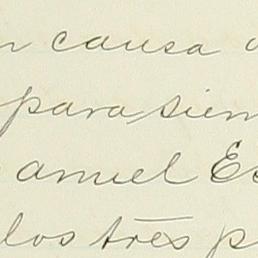 n causa
para siem
anuel E
los três p